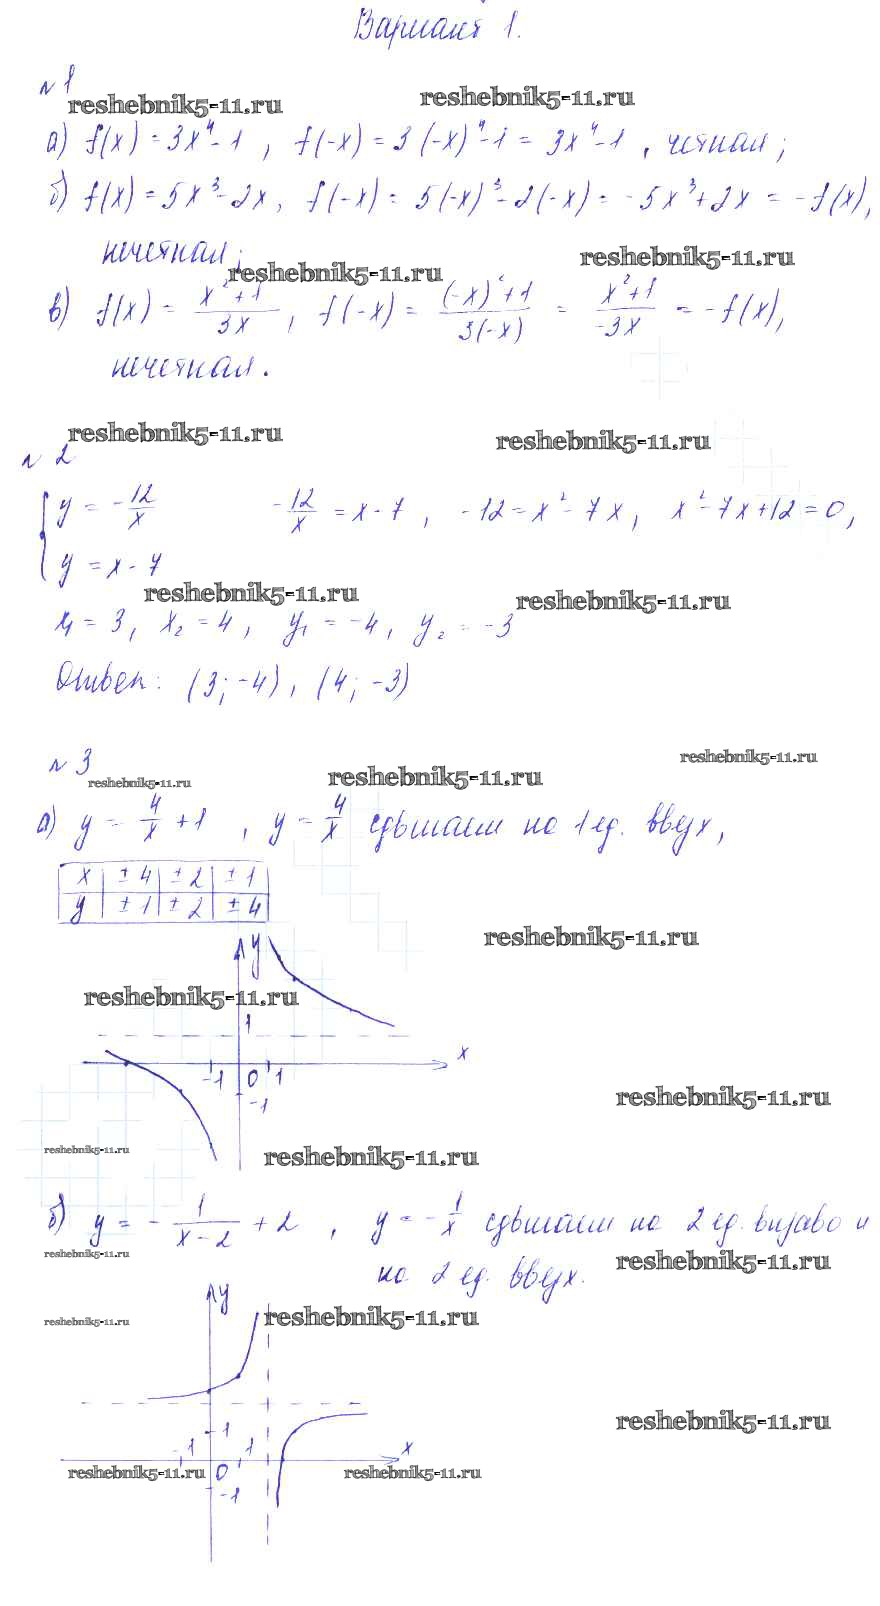 Вариант 1.
№ 1
reshebnik5-11.ru reshebnik5-11.ru
а) f(x) = 3x⁴ - 1 , f(-x) = 3(-x)⁴ - 1 = 3x⁴ - 1 , четная ;
б) f(x) = 5x³ - 2x , f(-x) = 5(-x)³ - 2(-x) = -5x³ + 2x = -f(x),
нечетная ;
reshebnik5-11.ru reshebnik5-11.ru
в) f(x) = (x² + 1)/(3x) , f(-x) = ((-x)² + 1)/(3(-x)) = (x² + 1)/(-3x) = -f(x),
нечетная .
reshebnik5-11.ru reshebnik5-11.ru
№ 2
{ y = -12/x -12/x = x - 7 , -12 = x² - 7x , x² - 7x + 12 = 0 ,
y = x - 7
reshebnik5-11.ru reshebnik5-11.ru
x₁ = 3 , x₂ = 4 , y₁ = -4 , y₂ = -3
Ответ: (3; -4) , (4; -3)
№ 3
reshebnik5-11.ru reshebnik5-11.ru reshebnik5-11.ru
а) y = 4/x + 1 , y = 4/x сдвигаем на 1 ед. вверх,
x ±4 ±2 ±1
y ±1 ±2 ±4
reshebnik5-11.ru
y
reshebnik5-11.ru
1
x
-1 0 1
-1
reshebnik5-11.ru
reshebnik5-11.ru reshebnik5-11.ru
б) y = - 1/(x - 2) + 2 , y = - 1/x сдвигаем на 2 ед. вправо и
reshebnik5-11.ru reshebnik5-11.ru
на 2 ед. вверх.
y
reshebnik5-11.ru reshebnik5-11.ru
reshebnik5-11.ru
1
-1 1 x
reshebnik5-11.ru 0 reshebnik5-11.ru
-1